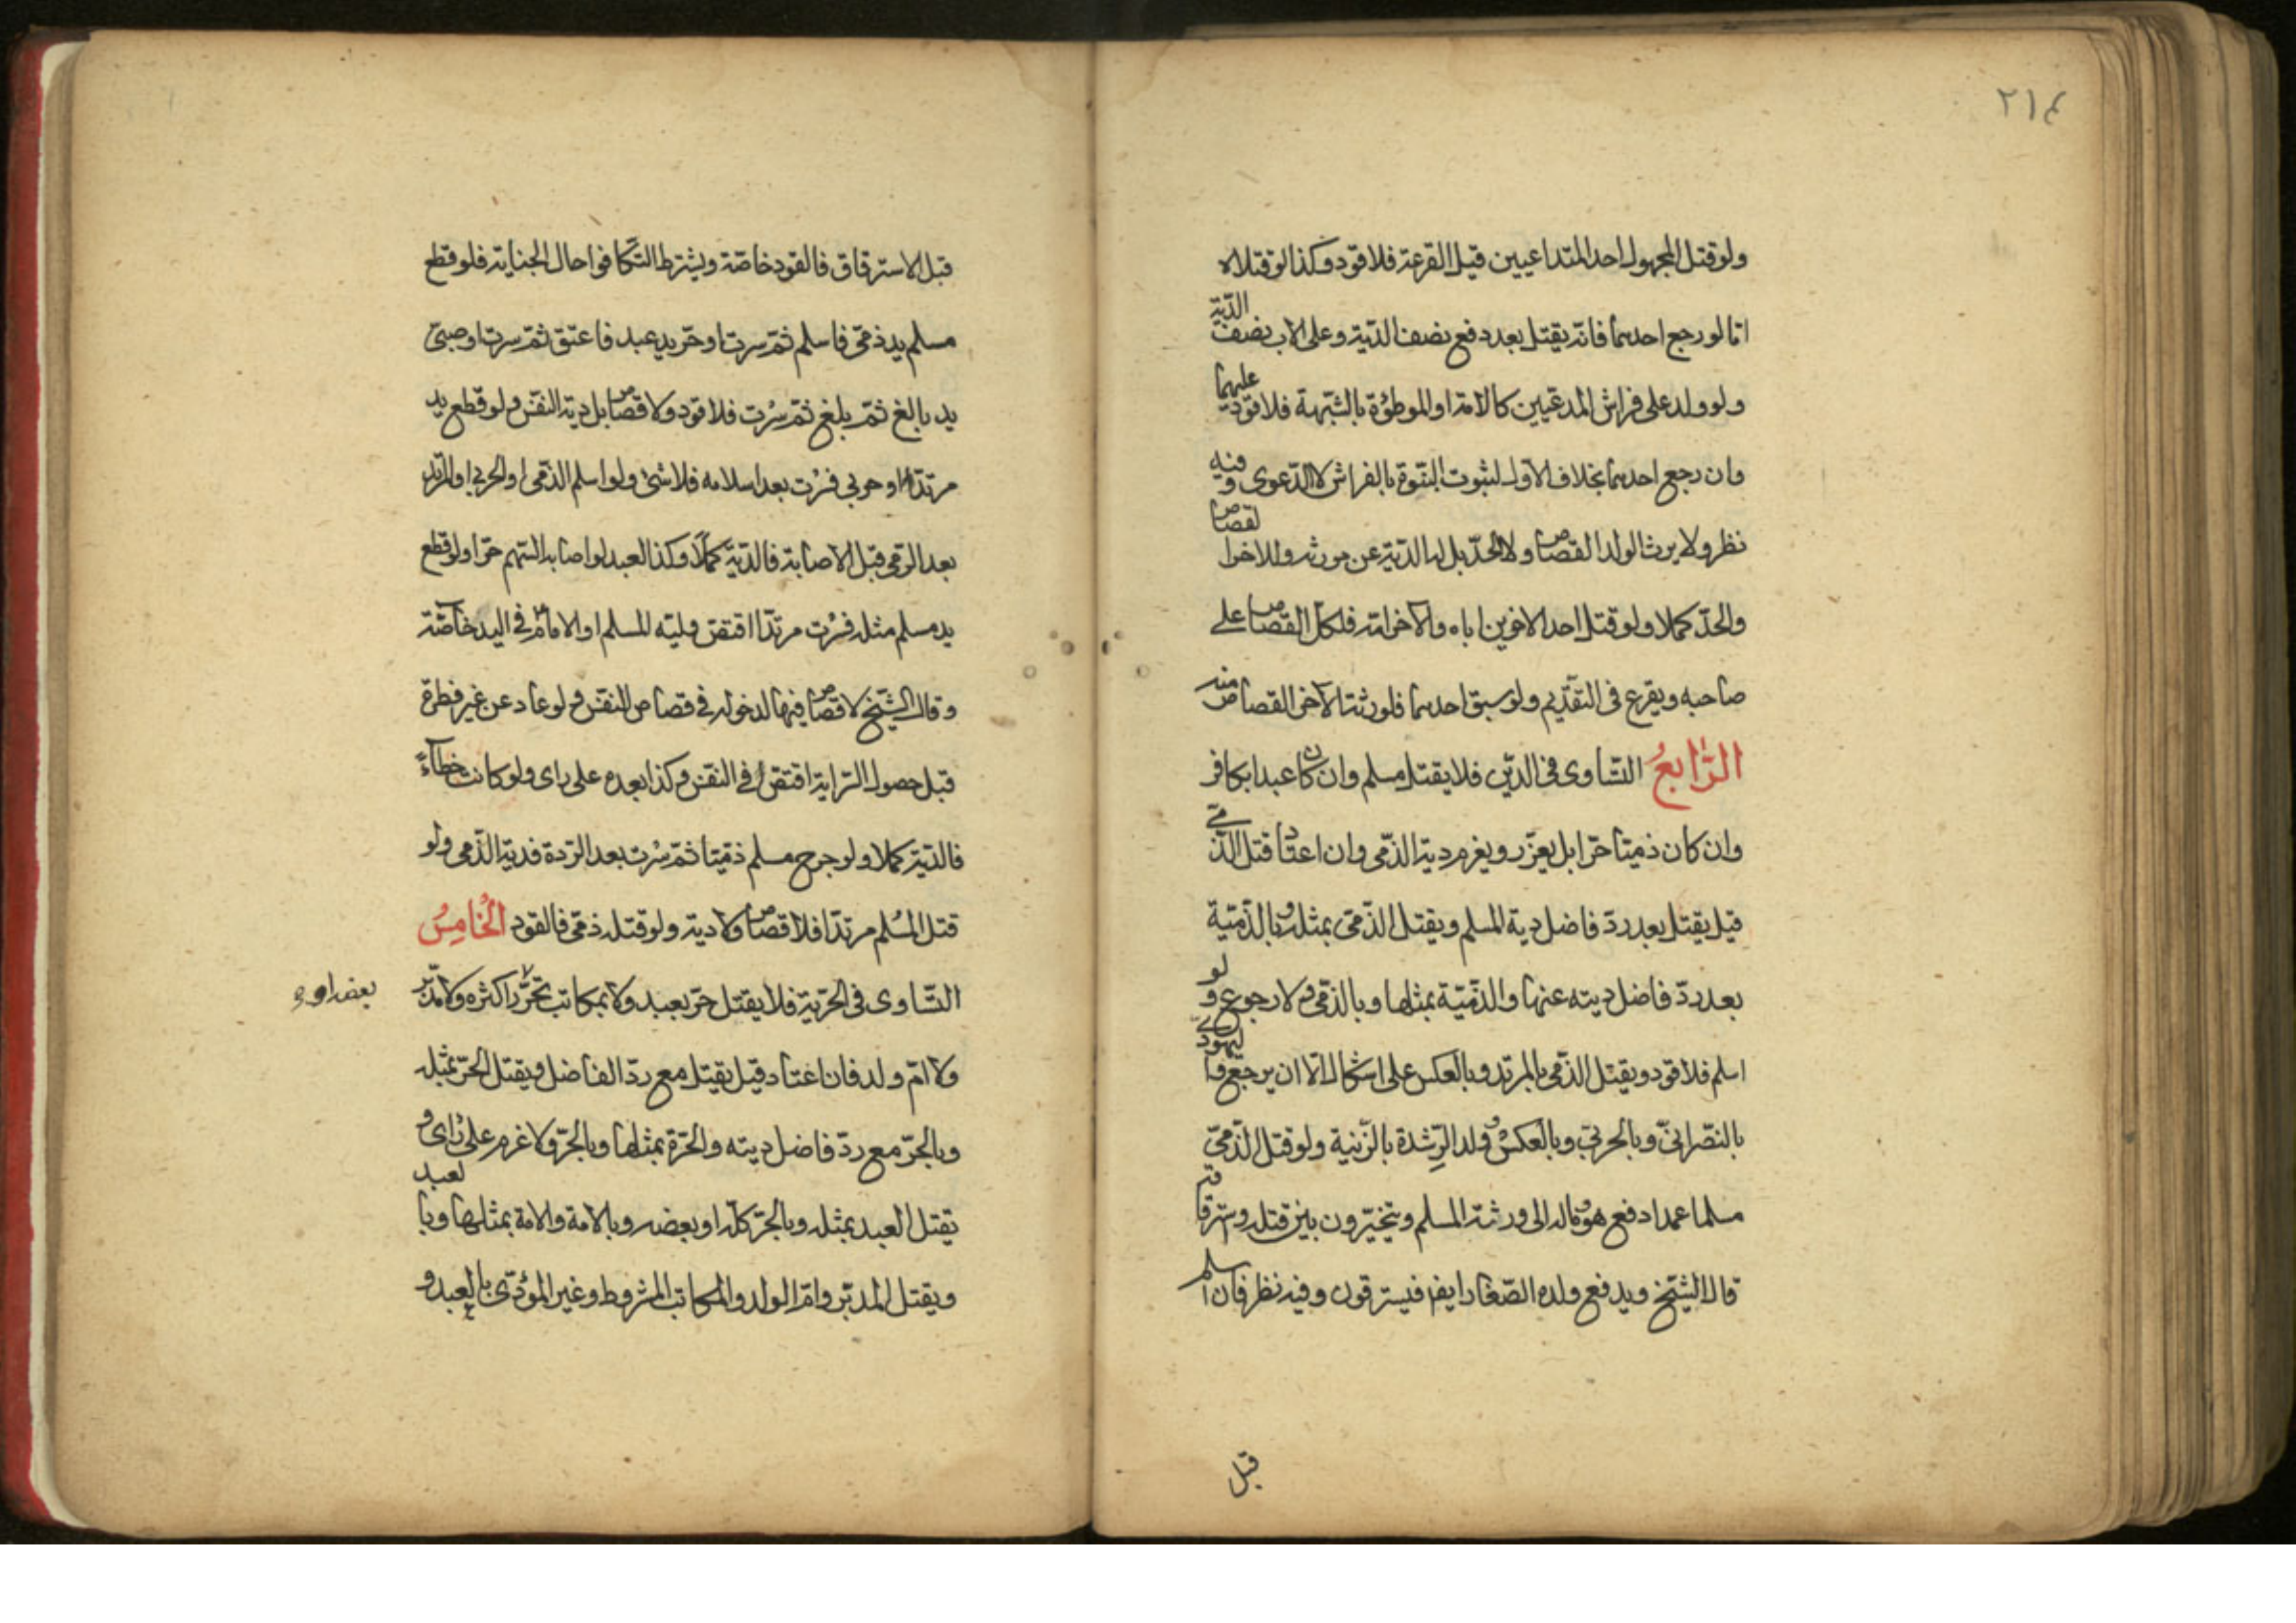 ٢١٤
ولو قتل المجهول احد المتداعيين قبل القرعة فلا قود وكذا لو قتلاه
امّا لو رجع احدهما فانّه يقتل بعد دفع نصف الدّية وعلى الاب نصف الدّية
ولو ولد على فراش المدعيين كالامة او الموطؤة بالشّبهة فلا قود عليهما
وان رجع احدهما بخلاف الاول لثبوت البنّوة بالفراش لا الدّعوى وفيه
نظر ولا يرث الولد القصاص ولا الحدّ بل له الدّية عن مورثه وللاخر القصاص
والحدّ كملا ولو قتل احد الاخوين اباه والآخر امّه فلكل القصاص على
صاحبه ويقرع فى التقديم ولو سبق احدهما فلورثة الآخر القصاص منه
الرّابعُ التساوى فى الدّين فلا يقتل مسلم وان كان عبدا بكافر
وان كان ذميّا حرّا بل يعزّر ويغرم دية الذّمى وان اعتاد قتل الذّمى
قيل يقتل بعد ردّ فاضل دية المسلم ويقتل الذّمى بمثله وبالذّميّة
بعد ردّ فاضل ديته عنها والذّميّة بمثلها وبالذّمى ولا رجوع ولو
اسلم فلا قود ويقتل الذّمى بالمرتد وبالعكس على اشكال الّا ان يرجع واليهودى
بالنّصرانىّ وبالحربىّ وبالعكس وولد الرِّشدة بالزّنية ولو قتل الذّمىّ
مسلما عمدا دفع هو وماله الى ورثة المسلم ويتخيّرون بين قتله واسترقاقه
قال الشّيخ ويدفع ولده الصّغار ايضا فيسترقون وفيه نظر فان اسلم
قبل
قبل الاسترقاق فالقود خاصّة ويشترط التّكافؤ حال الجناية فلو قطع
مسلم يد ذمّى فاسلم ثمّ سرت او حرّ يد عبد فاعتق ثمّ سرت او صبىّ
يد بالغ ثمّ بلغ ثمّ سرت فلا قود ولا قصاص بل دية النفس ولو قطع يد
مرتدّ او حربى فسرت بعد اسلامه فلا شئ ولو اسلم الذّمى او الحربى او المرتد
بعد الرّمى قبل الاصابة فالدّية كملًا وكذا العبد لو اصابه السّهم حرّا ولو قطع
يد مسلم مثله فسرت مرتدّا اقتصّ وليّه المسلم او الامام فى اليد خاصّة
وقال الشّيخ لا قصاص فيها لدخوله فى قصاص النفس ولو عاد عن غير فطرة
قبل حصول السّراية اقتصّ فى النفس وكذا بعده على راى ولو كانت خطاءً
فالدّية كملا ولو جرح مسلم ذميّا ثمّ سرت بعد الرّدة فدية الذّمى ولو
قتل المسْلم مرتدّا فلا قصاص ولا دية ولو قتله ذمّى فالقود الخامِسُ
التّساوى فى الحرّية فلا يقتل حرّ بعبد ولا بمكاتب تحرّر اكثره ولا مدبّر
ولا امّ ولد فان اعتاد قيل يقتل مع ردّ الفاضل ويقتل الحرّ بمثله
وبالحرّة مع ردّ فاضل ديته والحرّة بمثلها وبالحرّ ولا غرم على راى و
يقتل العبد بمثله وبالحرّ كلّه او بعضه وبالامة والامة بمثلها وبالعبد
ويقتل المدبّر وامّ الولد والمكاتب المشروط وغير المؤدّى بالعبد و